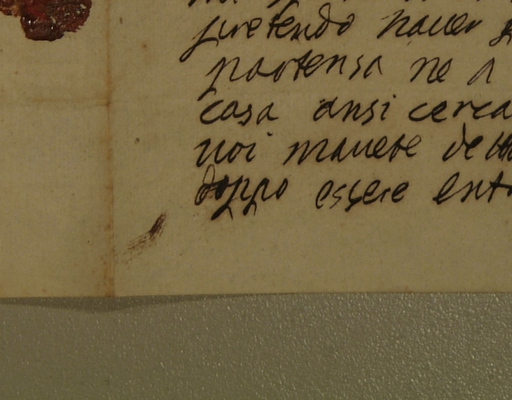 pretendo hauer
partensa ne a
casa ansi cerca
uoi mauete de
doppo essere ent